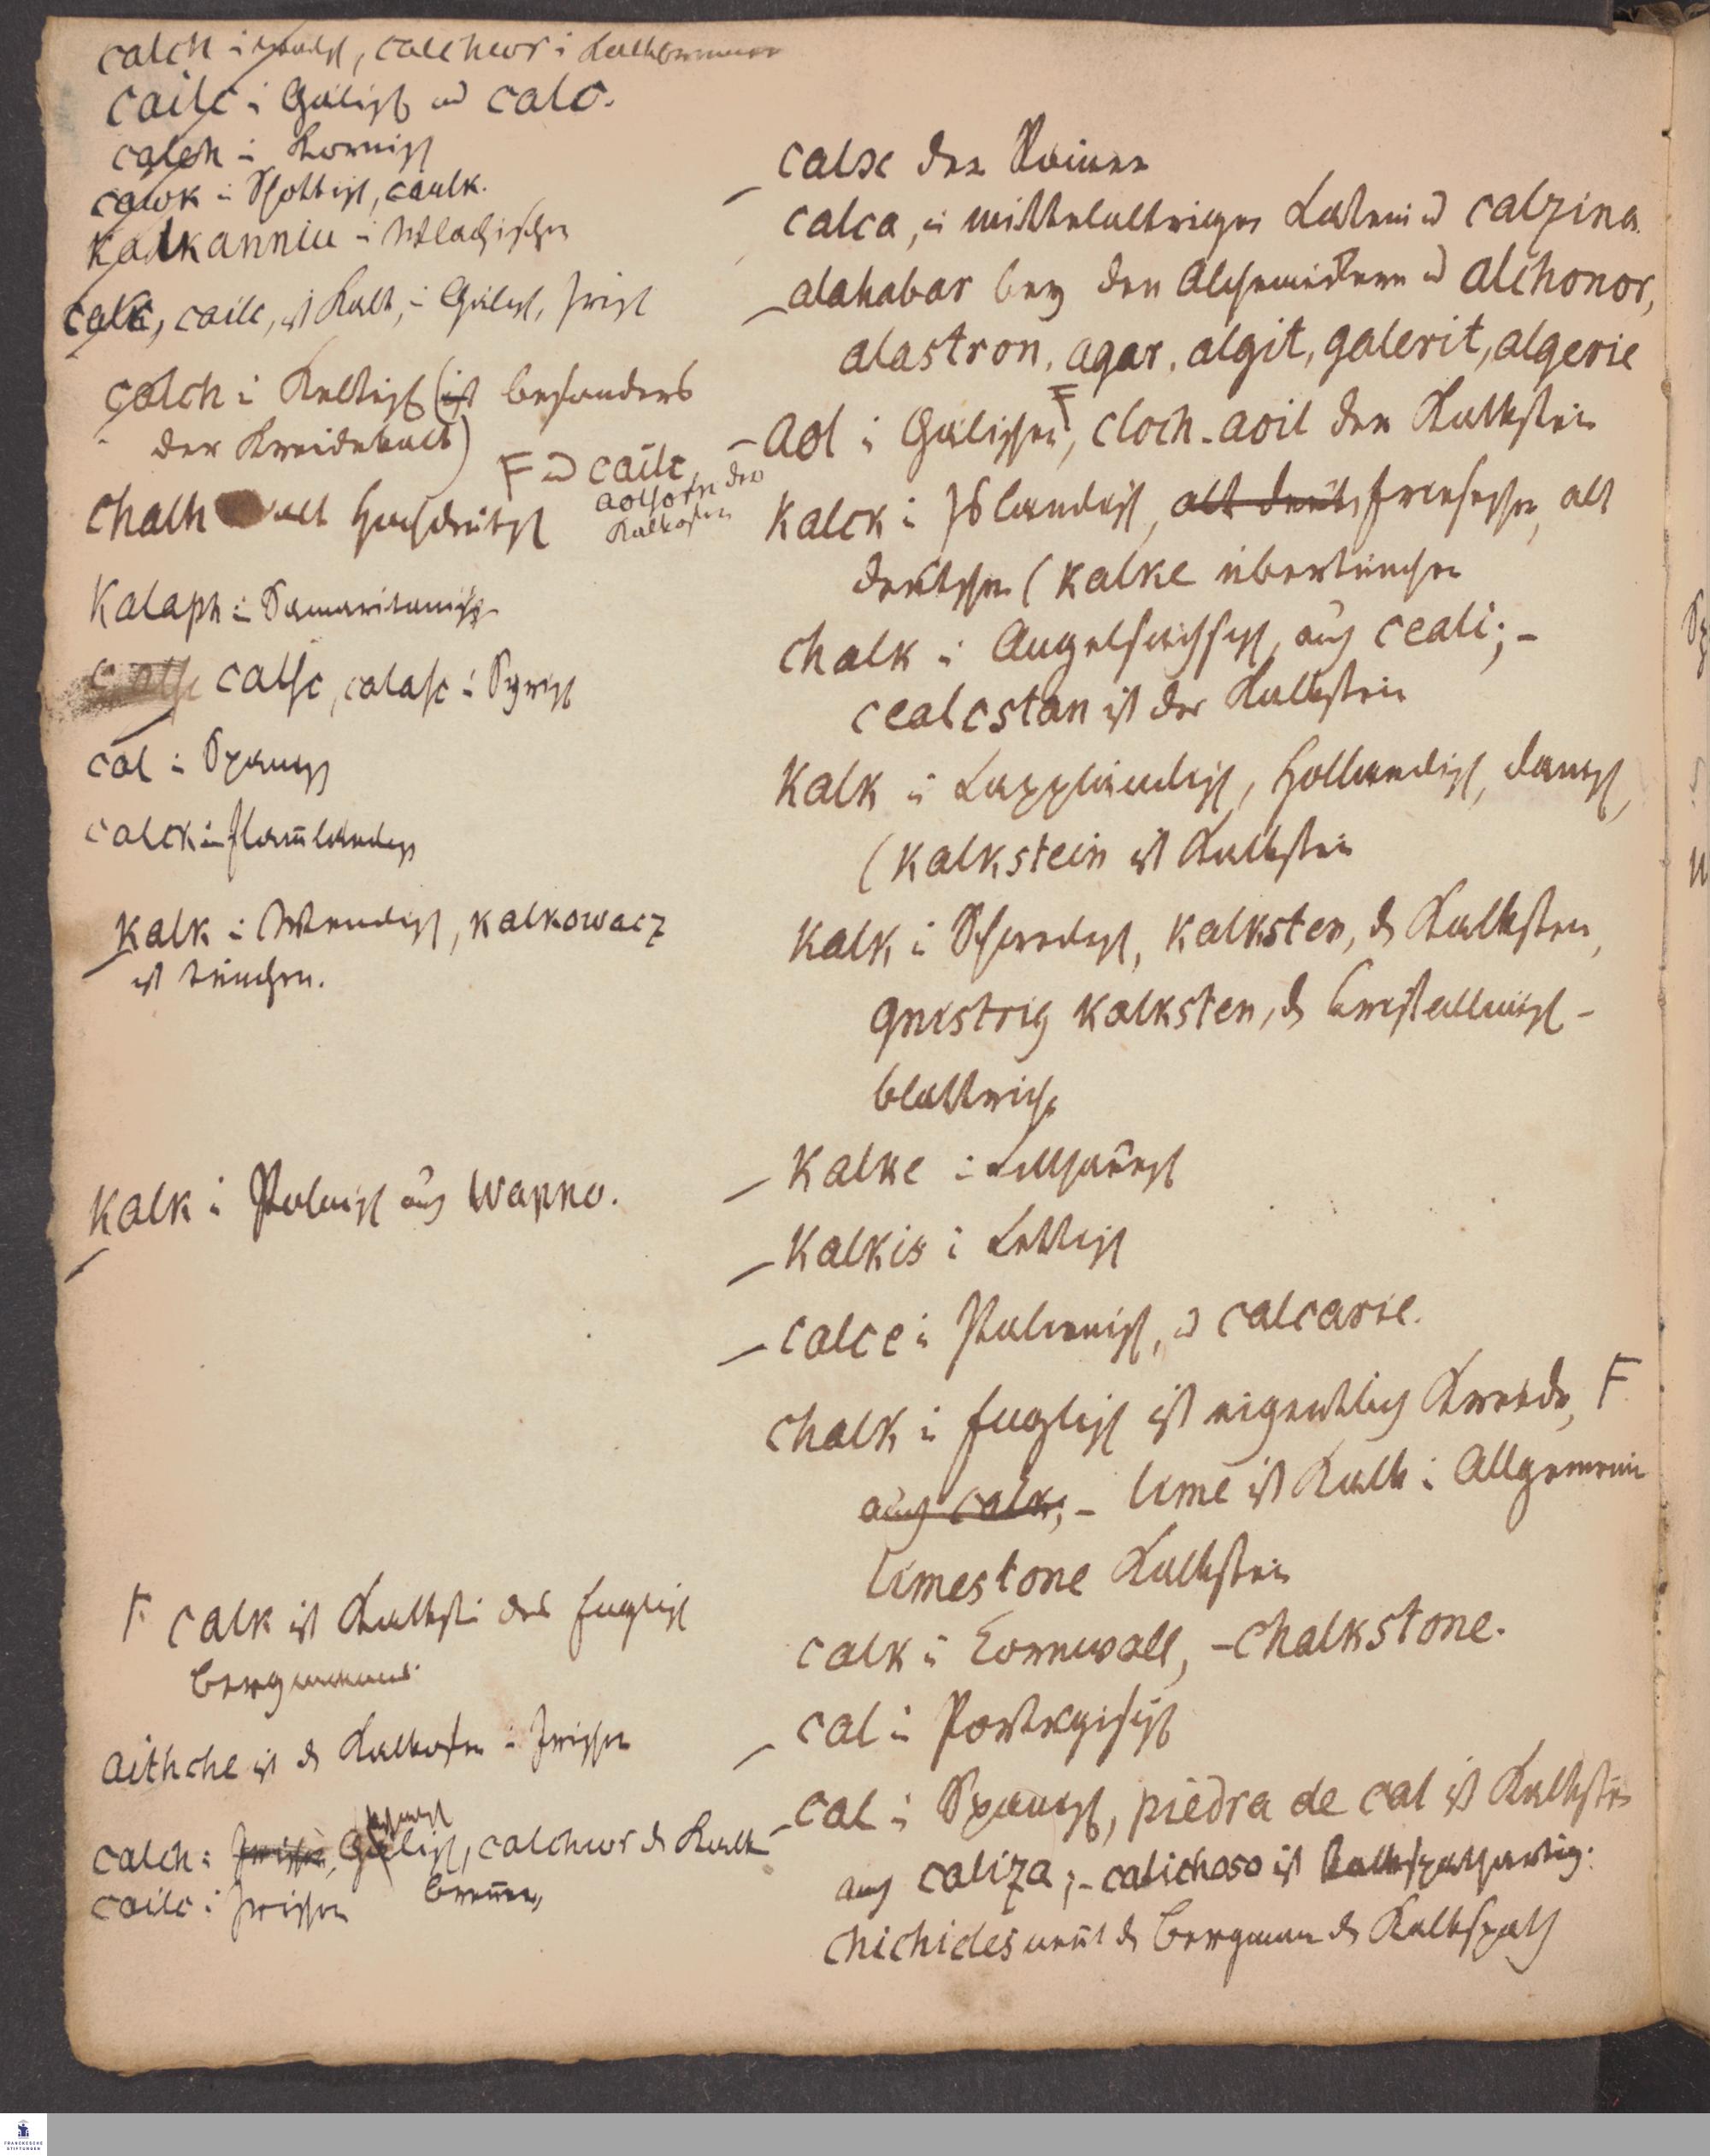 calch i calchwr i Kalkbrenner
cailc i Gälisch u calc.
calch i Kornisch
cawk i Schottisch, caulk.
Kalkanniu i
calk, cailc, ist Kalk, i Gälisch, Irisch
calch i Keltisch (ist besonders
der Kreidekalk)
F u cailc,
aolsorn der
Kalkofen
chalh alt Hochdeutsch
Kalaph i Samaritanisch
calsc, calasc i Syrisch
cal i Spanisch
calck i flamländisch
Kalk i Wendisch, Kalkowacz
ist tünchen.
Kalk i Polnisch auch Wapno.
F calk ist Kalkst. des Englisch
Bergmanns.
aithche ist d Kalkofen i Irischen
calch i Irischen, Gälisch, calchwr d Kalk
brennen,
cailc i Irischen
calx der Römer
calca, i mittelaltrigen Latein u calzina
alahabar bey den Alchemisten u alchonor,
alastron, agar, algit, galerit, algerie
Aol i Gälischen F, cloch-aoil der Kalkstein
Kalck i Isländisch, alt deuts friesischen, alt
deutschen (Kalke übertünchen
chalk i Angelsächsisch, auch cealc; -
cealcstan ist der Kalkstein
Kalk i Lappländisch, Holländisch, dänisch,
(Kalkstein ist Kalkstein
Kalk i Schwedisch, Kalksten, d Kalkstein,
gnistrig kalksten, d krystallinisch-
blättrich
Kalke i
Kalkis i Lettisch
calce i Italienisch, u calcarie.
chalk i Englisch ist eigentlich Kreide, F
auch calk; - lime ist Kalk i Allgemein
limestone Kalkstein
calk i Cornwall, - chalkstone.
cal i Portugisisch
cal i Spanisch, piedra de cal ist Kalkstein
auch caliza; - calichoso ist kalkspathartig.
chichides nennt d Bergmann d Kalkspath
FRANCKESCHE
STIFTUNGEN